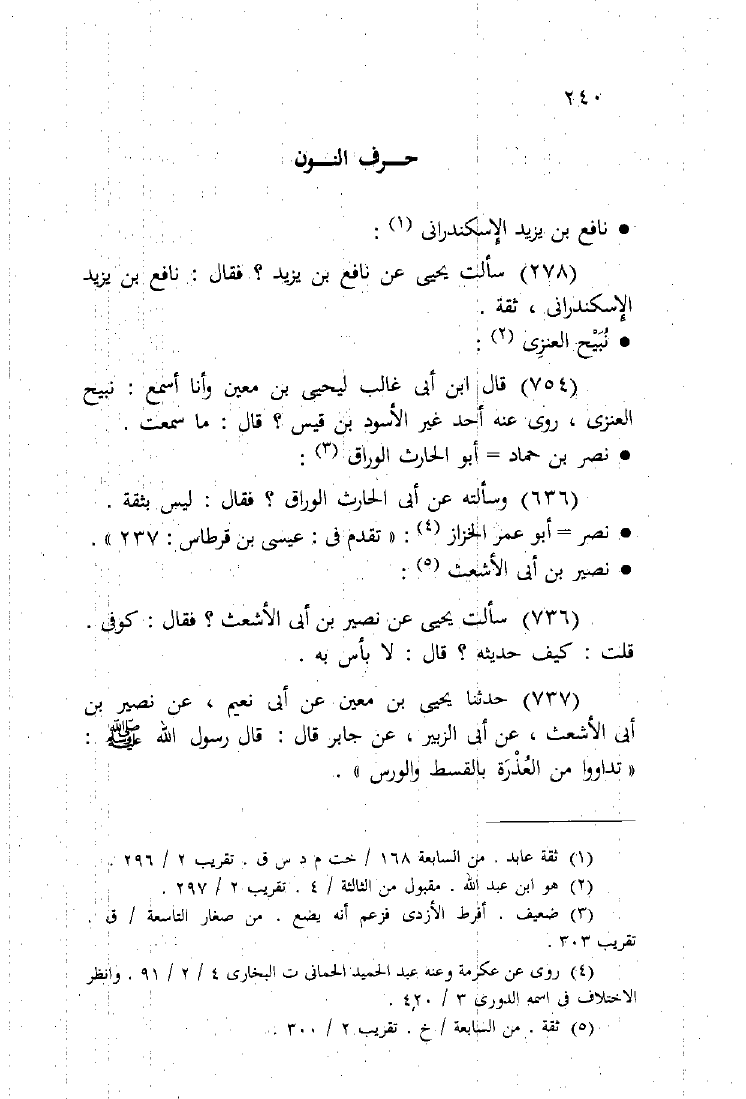 ٢٤٠
حرف النون
● نافع بن يزيد الإسكندرانى (١) :
(٢٧٨) سألت يحيى عن نافع بن يزيد ؟ فقال : نافع بن يزيد
الإسكندرانى ، ثقة .
● نُبَيْح العنزِى (٢) :
(٧٥٤) قال ابن أبى غالب ليحيى بن معين وأنا أسمع : نبيح
العنزى ، روى عنه أحد غير الأسود بن قيس ؟ قال : ما سمعت .
● نصر بن حماد = أبو الحارث الوراق (٣) :
(٦٣٦) وسألته عن أبى الحارث الوراق ؟ فقال : ليس بثقة .
● نصر = أبو عمر الخزاز (٤) : « تقدم فى : عيسى بن قرطاس : ٢٣٧ » .
● نصير بن أبى الأشعث (٥) :
(٧٣٦) سألت يحيى عن نصير بن أبى الأشعث ؟ فقال : كوفى .
قلت : كيف حديثه ؟ قال : لا بأس به .
(٧٣٧) حدثنا يحيى بن معين عن أبى نعيم ، عن نصير بن
أبى الأشعث ، عن أبى الزبير ، عن جابر قال : قال رسول الله ﷺ :
« تداووا من العُذْرَة بالقسط والورس » .
(١) ثقة عابد . من السابعة ١٦٨ / خت م د س ق . تقريب ٢ / ٢٩٦ .
(٢) هو ابن عبد الله . مقبول من الثالثة / ٤ . تقريب ٢ / ٢٩٧ .
(٣) ضعيف . أفرط الأزدى فزعم أنه يضع . من صغار التاسعة / ق .
تقريب ٣٠٣ .
(٤) روى عن عكرمة وعنه عبد الحميد الحمانى ت البخارى ٤ / ٢ / ٩١ . وانظر
الاختلاف فى اسمه الدورى ٣ / ٤٢٠ .
(٥) ثقة . من السابعة / خ . تقريب ٢ / ٣٠٠ .